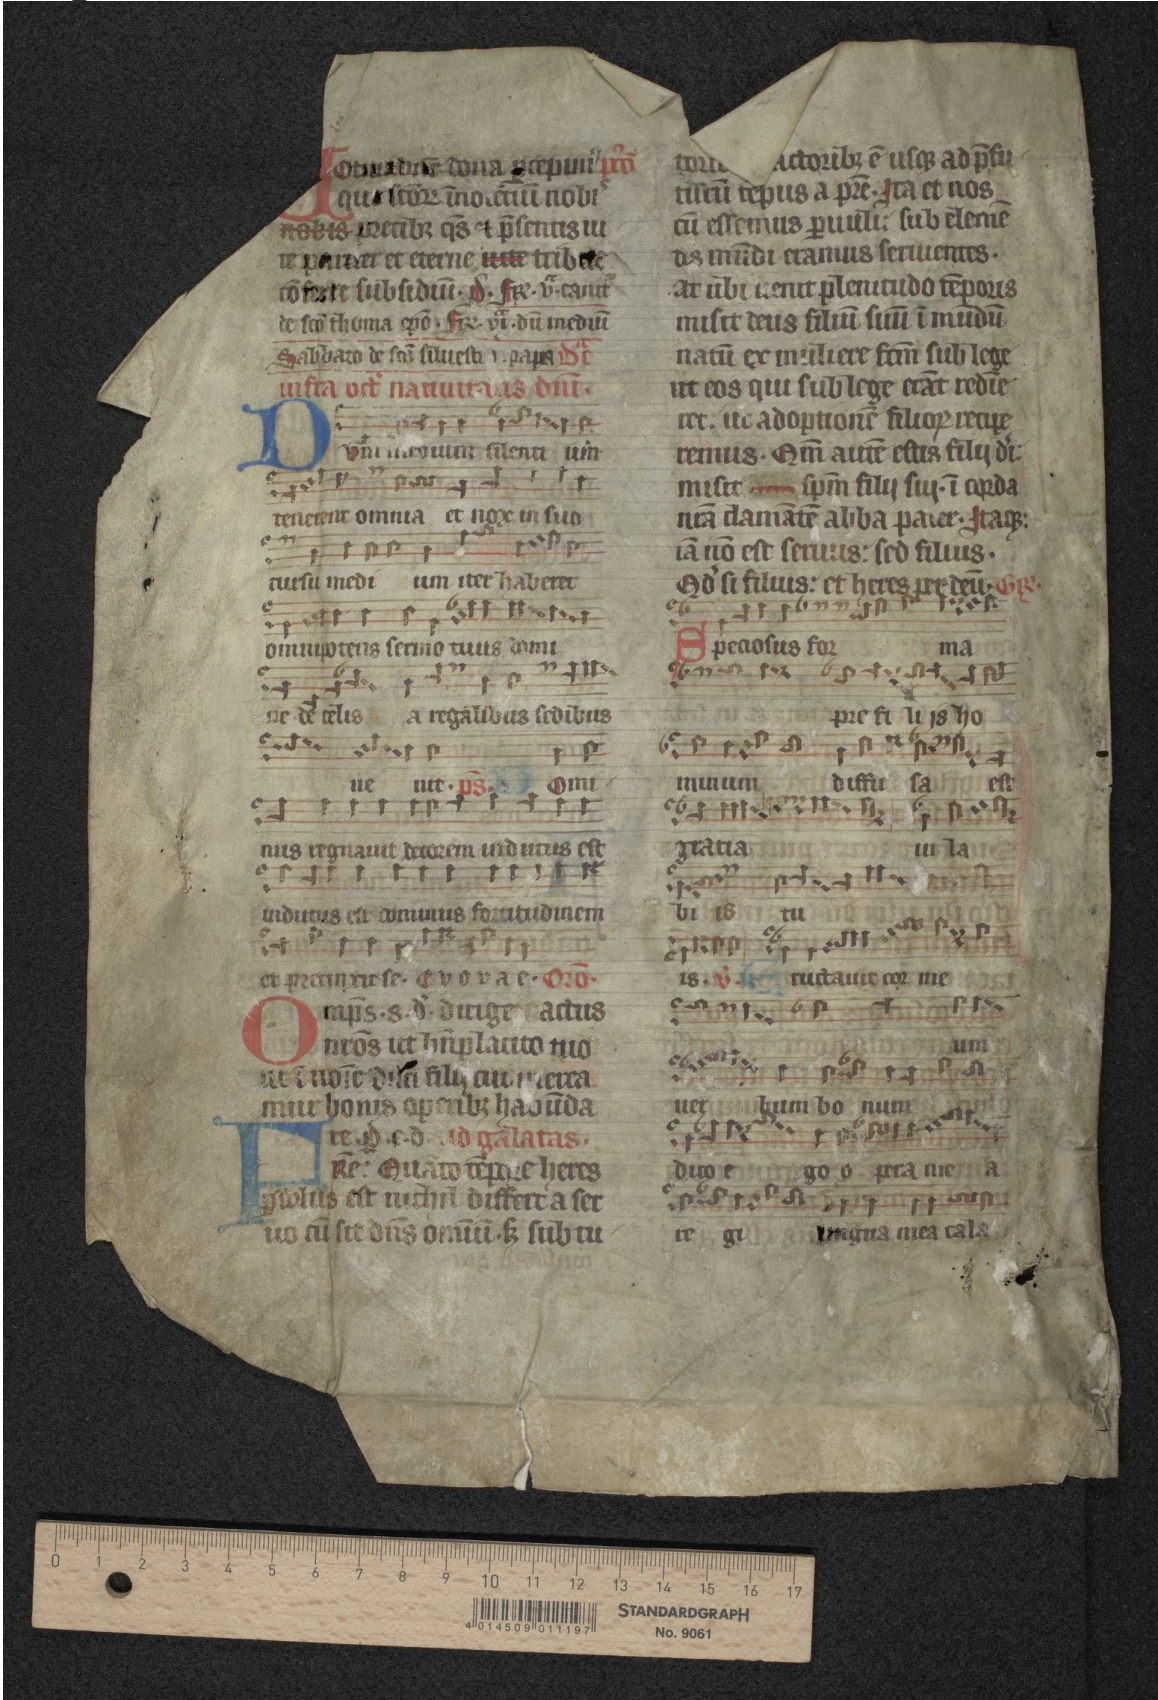 dona
nobis precibȝ qs̄ et p̄sentis ui
te pariter et eterne tribue
cōferre subsidiū.
de sc̄o thoma ep̄o. fr̄ vi. dū mediū
Sabbato de sc̄o siluestr papa
iuxta oct̄ natiuitatis dn̄i.
Dvm medium silenti um
tenerent omnia et nox in suo
cursu medi um iter haberet
omnipotens sermo tuus domi
ne de celis a regalibus sedibus
ue nit. ps̄. D Omi
nus regnauit decorem indutus est
indutus est dominus fortitudinem
et precinxit se. E v o v a e. Orō.
Omp̄s. s. d̄. dirige actus
nr̄os ut bn̄placito tuo
ut ī noīe filij tui merea
mur bonis operibȝ habūda
re. ad galatas.
Fr̄e. Quāto tēpore heres
paruulus est nichil differt a ser
uo cū sit dn̄s omniū. sȝ sub tu
toribȝ actoribȝ ē usqȝ ad p̄fi
nitū tēpus a pr̄e. Ita et nos
cū essemus paruuli: sub elemē
tis mūdi eramus seruientes.
At ubi uenit plenitudo tēporis
misit deus filiū suū ī mūdū
natū ex muliere fc̄m sub lege
ut eos qui sub lege erāt redīe
ret. ut adoptionē filioꝝ recipe
remus. Qm̄ autē estis filij di:
misit sp̄m filij sui. ī corda
nr̄a clamātē abba pater. Itaqȝ:
iā nō est seruus: sed filius.
Qd̓ si filius: et heres per deū. Gr̄.
Speciosus for ma
pre fi li is ho
minum diffu sa est
gratia in la
bi is tu
is. v̄. E ructauit cor me
um
uer bum bo num
dico e go o pera me a
re gi lingua mea cala
0 1 2 3 4 5 6 7 8 9 10 11 12 13 14 15 16 17
STANDARDGRAPH
No. 9061
4 014509 011197